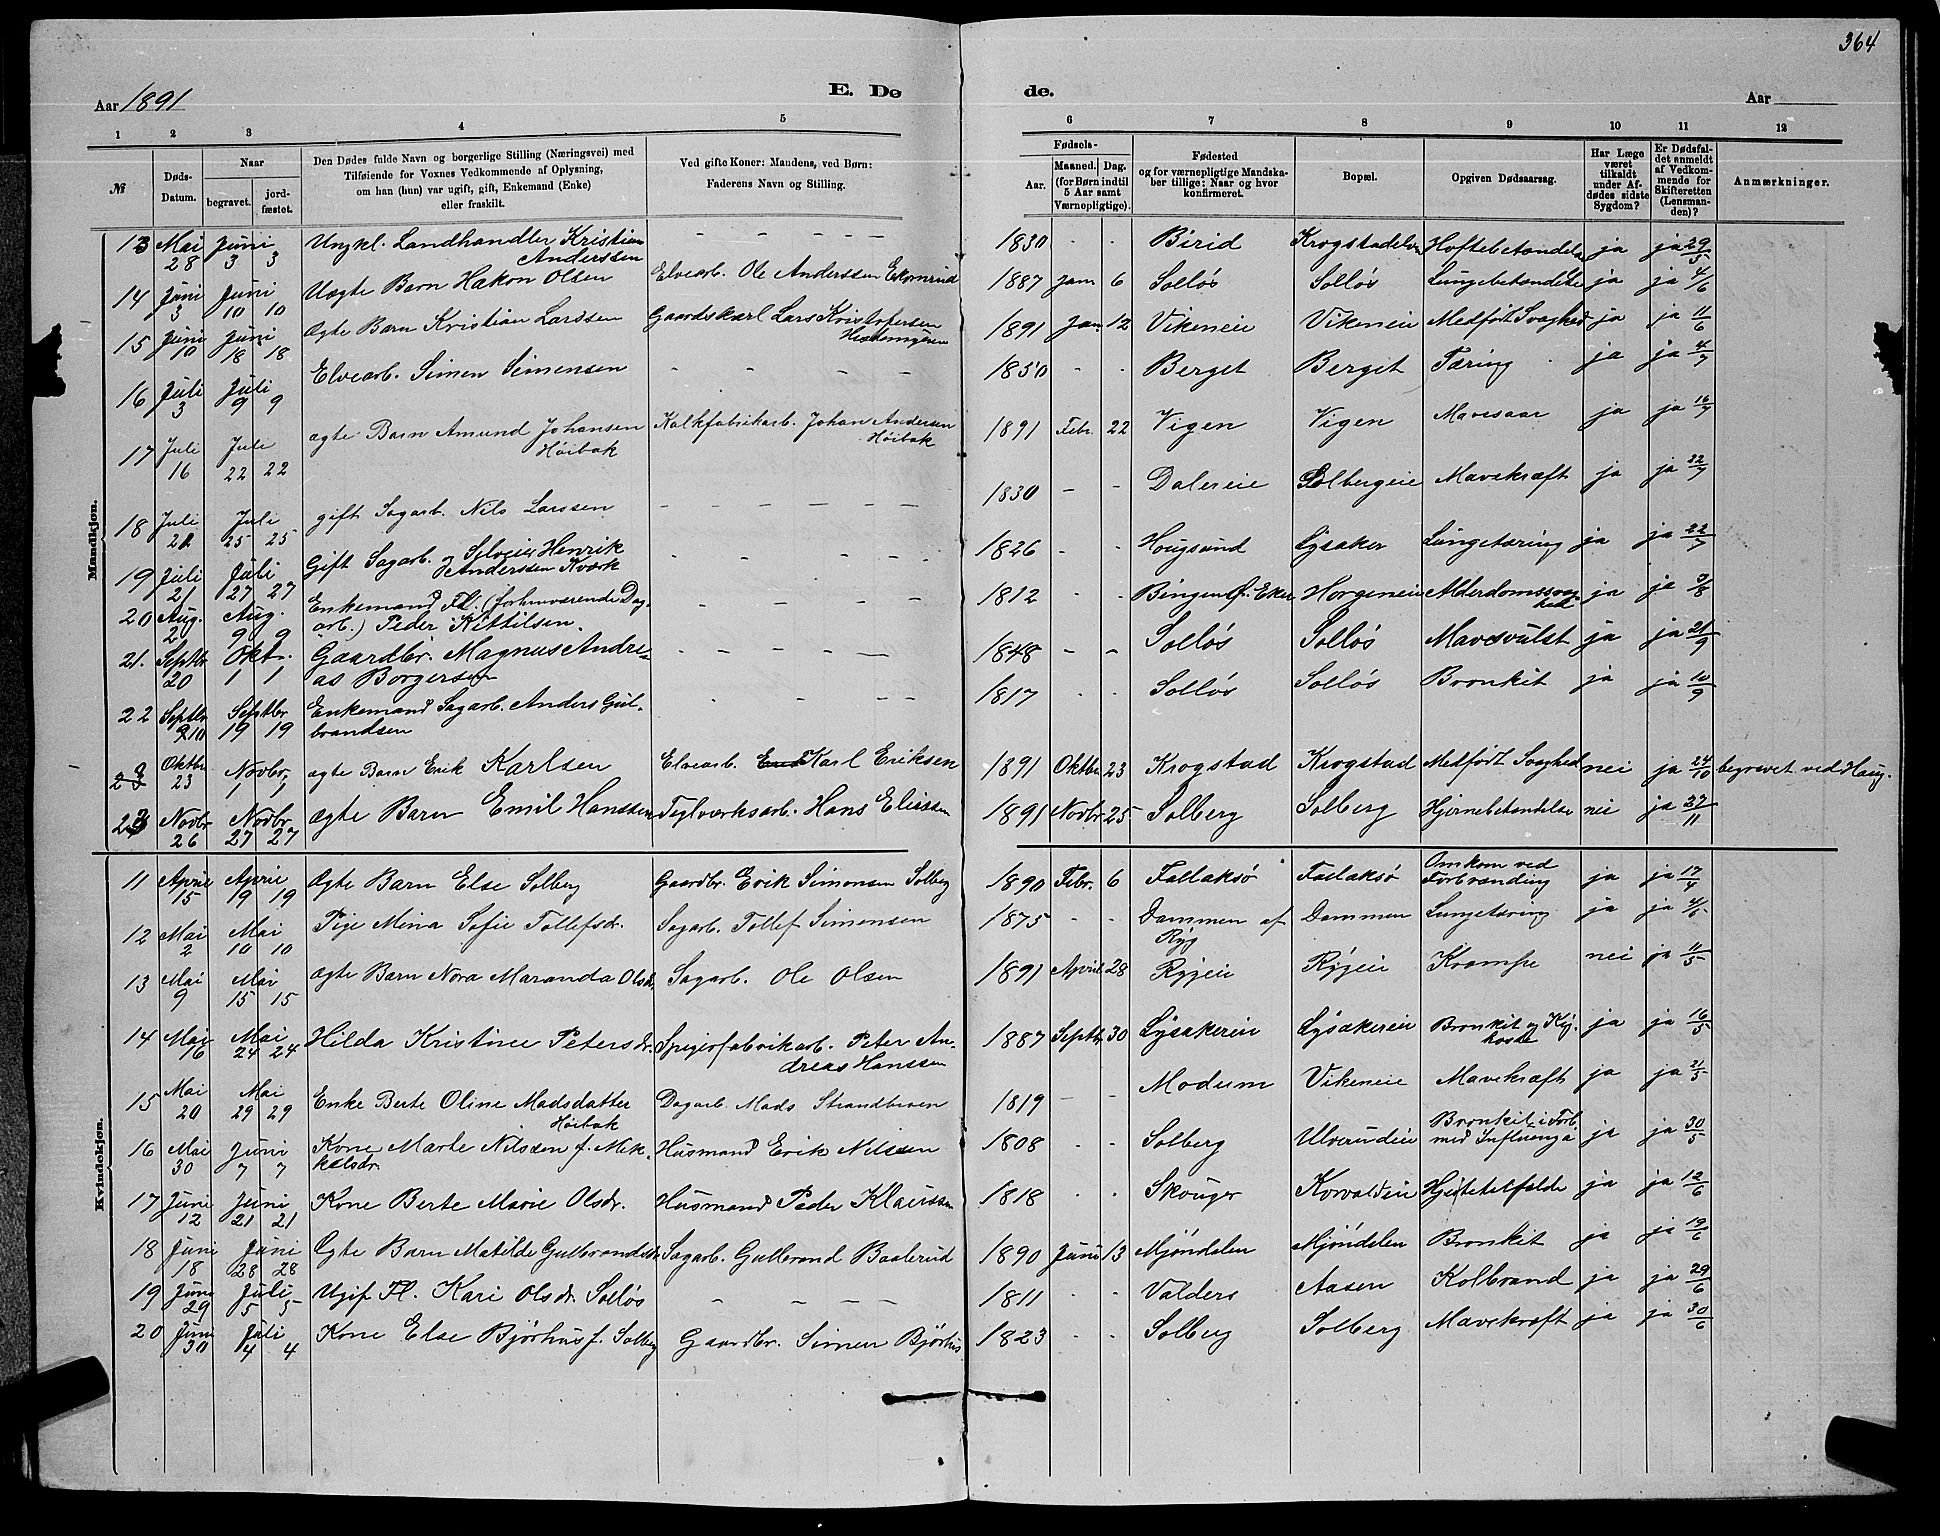 364
Aar 1891
E. Dø
de.
Aar
1 2 3 4 5 6 7 8 9 10 11 12
№
Døds-
Datum.
Naar
begravet.
jord-
fæstet.
Den Dødes fulde Navn og borgerlige Stilling (Næringsvei) med
Tilføiende for Voxnes Vedkommende af Oplysning,
om han (hun) var ugift, gift, Enkemand (Enke)
eller fraskilt.
Ved gifte Koner: Mandens, ved Børn:
Faderens Navn og Stilling.
Fødsels-
Aar.
Maaned. Dag.
(for Børn indtil
5 Aar samt
Værnepligtige).
Fødested
og for værnepligtige Mandska-
ber tillige: Naar og hvor
konfirmeret.
Bopæl.
Opgiven Dødsaarsag.
Har Læge
været
tilkaldt
under Af-
dødes sidste
Sygdom?
Er Dødsfal-
det anmeldt
af Vedkom-
mende for
Skifteretten
(Lensman-
den)?
Anmærkninger.
Mandkjøn.
13 Mai 28 Juni 3 3 Ungkl. Landhandler Kristian
Anderssen - - - - - 1830 - - Birid Krogstadelven Hoftebetændelse ja ja 29/5
14 Juni 3 Juni 10 10 Uægte Barn Hakon Olsen Elvearb. Ole Anderssen Ekornrud 1887 Jan 6 Solløs Solløs Lungebetændelse ja ja 4/6
15 Juni 10 Juni 18 18 Ægte Barn Kristian Larssen Gaardskarl Lars Kristofersen
1891 Jan. 12 Vikeneie Vikeneie Medfødt Svaghed ja ja 11/6
16 Juli 3 Juli 9 9 Elvearb. Simen Simensen - - - - 1850 - - Berget Berget Tæring ja ja 4/7
17 Juli 16 Juli 22 22 ægte Barn Amund Johansen
Høibak Kalkfabrikarb. Johan Andersen
Høibak 1891 Febr. 22 Vigen Vigen Mavesaar ja ja 16/7
18 Juli 21 Juli 25 25 gift Sagarb. Nils Larssen - - - - - 1830 - - Dalereie Solbergeie Mavekræft ja ja 22/7
19 Juli 21 Juli 27 27 Gift Sagarb. og Selveier Henrik
Anderssen Kværk - - - - 1826 - - Hougsund Lysaker Lungetæring ja ja 22/7
20 Aug. 2 Aug. 9 9 Enkemand Fl. (forhenværende Dag-
arb.) Peder Kittilsen. - - - - 1812 - - Bingen Ø. Eker Horgeneie Alderdomssvag
hed ja ja 3/8
21. Septbr 20 Okt. 1 1 Gaardbr. Magnus Andre-
as Borgersen - - - - - 1848 - - Solløs Solløs Mavesvulst ja ja 21/9
22 Septbr 10 Septbr 19 19 Enkemand Sagarb. Anders Gul-
brandsen - - - - 1817 - - Solløs Solløs Bronkit ja ja 10/9
23 Oktbr 23 Novbr. 1 1 ægte Barn Erik Karlsen Elvearb. Karl Eriksen 1891 Oktbr. 23 Krogstad Krogstad Medfødt Svaghed nei ja 24/10 begravet ved Haug.
23 Novbr 26 Novbr 27 27 ægte Barn Emil Hanssen Teglverksarb. Hans Eliessen 1891 Novbr. 25 Solberg Solberg Hjernebetændelse nei ja 27/11
Kvindekjøn.
11 April 15 April 19 19 Ægte Barn Else Solberg Gaardbr. Erik Simonsen Solberg 1890 Febr. 6 Fallaksø Fallaksø Omkom ved
Forbrænding ja ja 17/4
12 Mai 2 Mai 10 10 Pige Mina Sofie Tollefsdr. Sagarb. Tollef Simensen 1875 - - Dammen af
Ryg Dammen Lungetæring ja ja 4/5
13 Mai 9 Mai 15 15 ægte Barn Nora Maranda Olsdr. Sagarb. Ole Olsen 1891 April 28 Rygeie Rygeie Krampe nei ja 11/5
14 Mai 16 Mai 24 24 Hilda Kristine Petersdr. Spigerfabrikarb. Peter An-
dreas Hanssen 1887 Septbr 30 Lysakereie Lysakereie Bronkit og Kig-
hoste ja ja 16/5
15 Mai 20 Mai 29 29 Enke Berte Oline Madsdatter
Høibak Dagarb. Mads Strandbraaten 1819 - - Modum Vikeneie Mavekræft ja ja 21/5
16 Mai 30 Juni 7 7 Kone Marte Nilssen f. Mik-
kelsdr. Husmand Erik Nilssen 1808 - - Solberg Ulverudeie Bronkit i Forb.
med Influenza ja ja 30/5
17 Juni 12 Juni 21 21 Kone Berte Marie Olsdr. Husmand Peder Klaussen 1818 - - Skouger Korvaldeie Hjertefeil ja ja 12/6
18 Juni 18 Juni 28 28 Ægte Barn Matilde Gulbrandsdr Sagarb. Gulbrand Baalerud 1890 Juni 13 Mjøndalen Mjøndalen Bronkit ja ja 19/6
19 Juni 29 Juli 5 5 Ugif Fl. Kari Olsdr. Solløs - - - - 1811 - - Valders Aasen Kolbrand ja ja 29/6
20 Juni 30 Juli 4 4 Kone Else Bjørhus f. Solberg Gaardbr. Simen Bjørhus 1823 - - Solberg Solberg Mavekræft ja ja 30/6